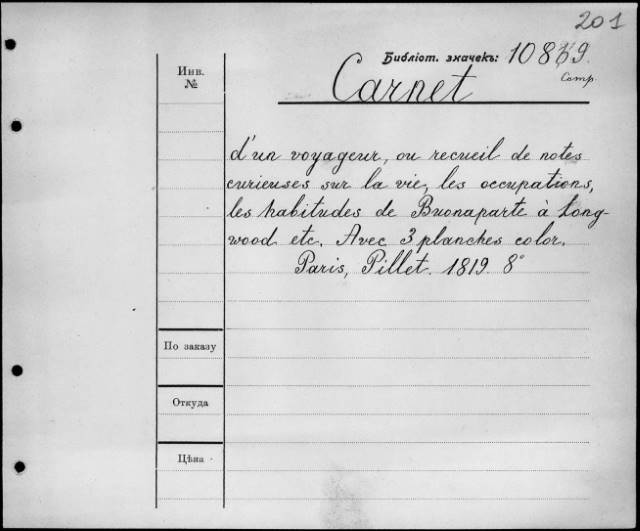 201
Библіот. значекъ: 108
Comp.
Инв.
№
Carnet
d'un voyageur, ou recueil de notes
curieuses sur la vie, les occupations,
les habitudes de Buonaparte à Long-
wood etc. Avec 3 planches color.
Paris, Pillet. 1819 8°
По заказу
Откуда
Цѣна